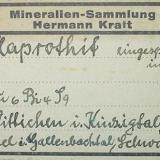 Mineralien-Sammlung
Hermann Kralt
laprothit eingesp
in
u6 Bi4 S9
Wittichen i. Kinzigtal
el i. Gallenbachtal, Schw